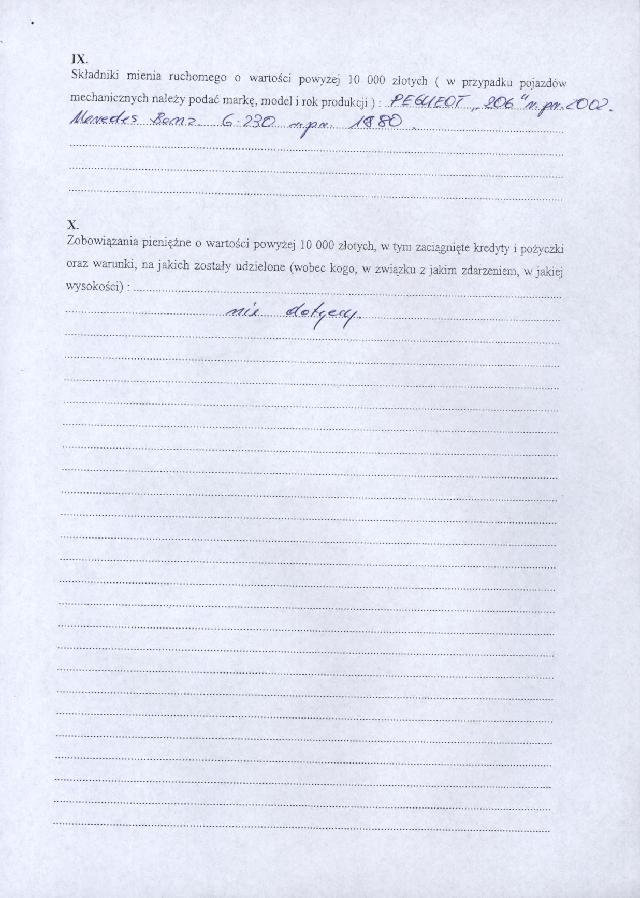 IX.
Składniki mienia ruchomego o wartości powyżej 10 000 złotych ( w przypadku pojazdów
mechanicznych należy podać markę, model i rok produkcji ) : PEGUEOT „206" r.pr. 2002.
Mercedes Benz G-230 r.pr. 1980.
X.
Zobowiązania pieniężne o wartości powyżej 10 000 złotych, w tym zaciągnięte kredyty i pożyczki
oraz warunki, na jakich zostały udzielone (wobec kogo, w związku z jakim zdarzeniem, w jakiej
wysokości) :
nie dotyczy.